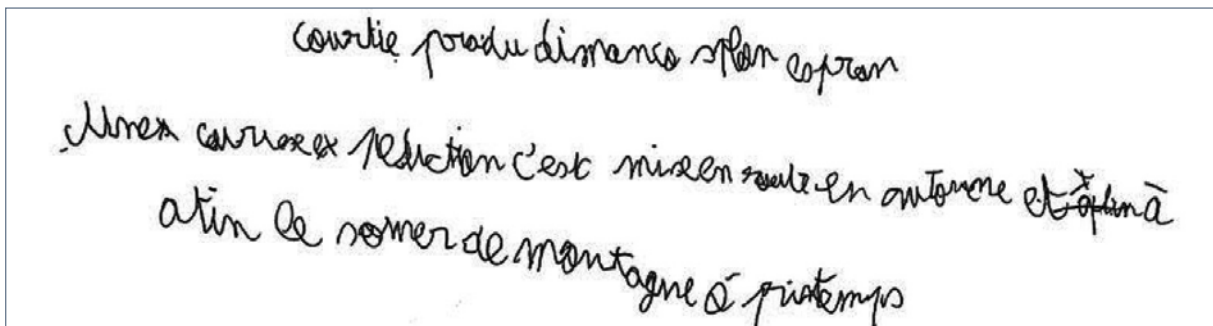 courtie produ dimance splan espran
Unex couruse ex péduction c'est mise en route en automne et à
atin le somer de montagne é printemps